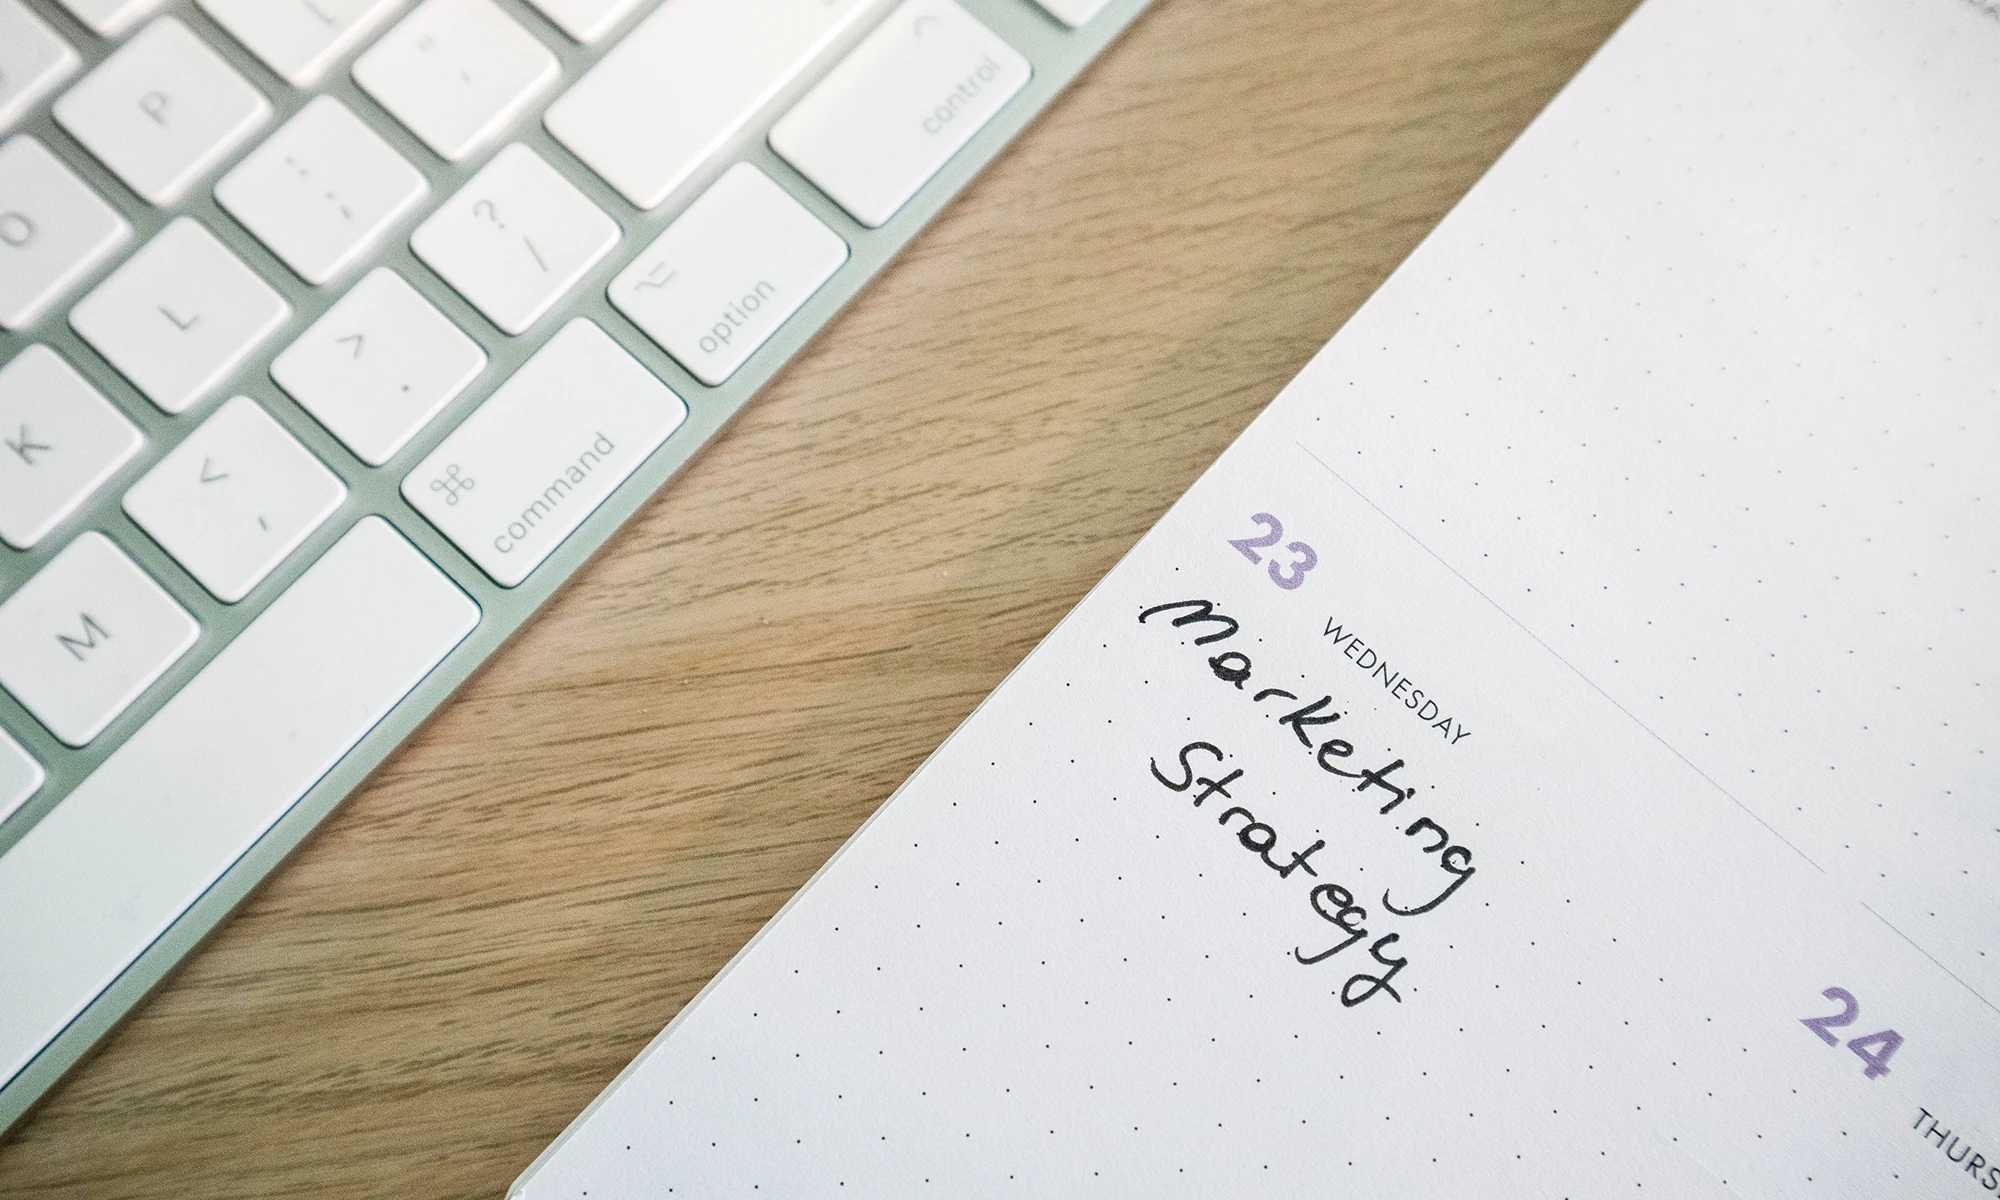 P
control
O
L
?
/
option
K
>
.
command
<
,
M
23
WEDNESDAY
Marketing
Strategy
24
THURS